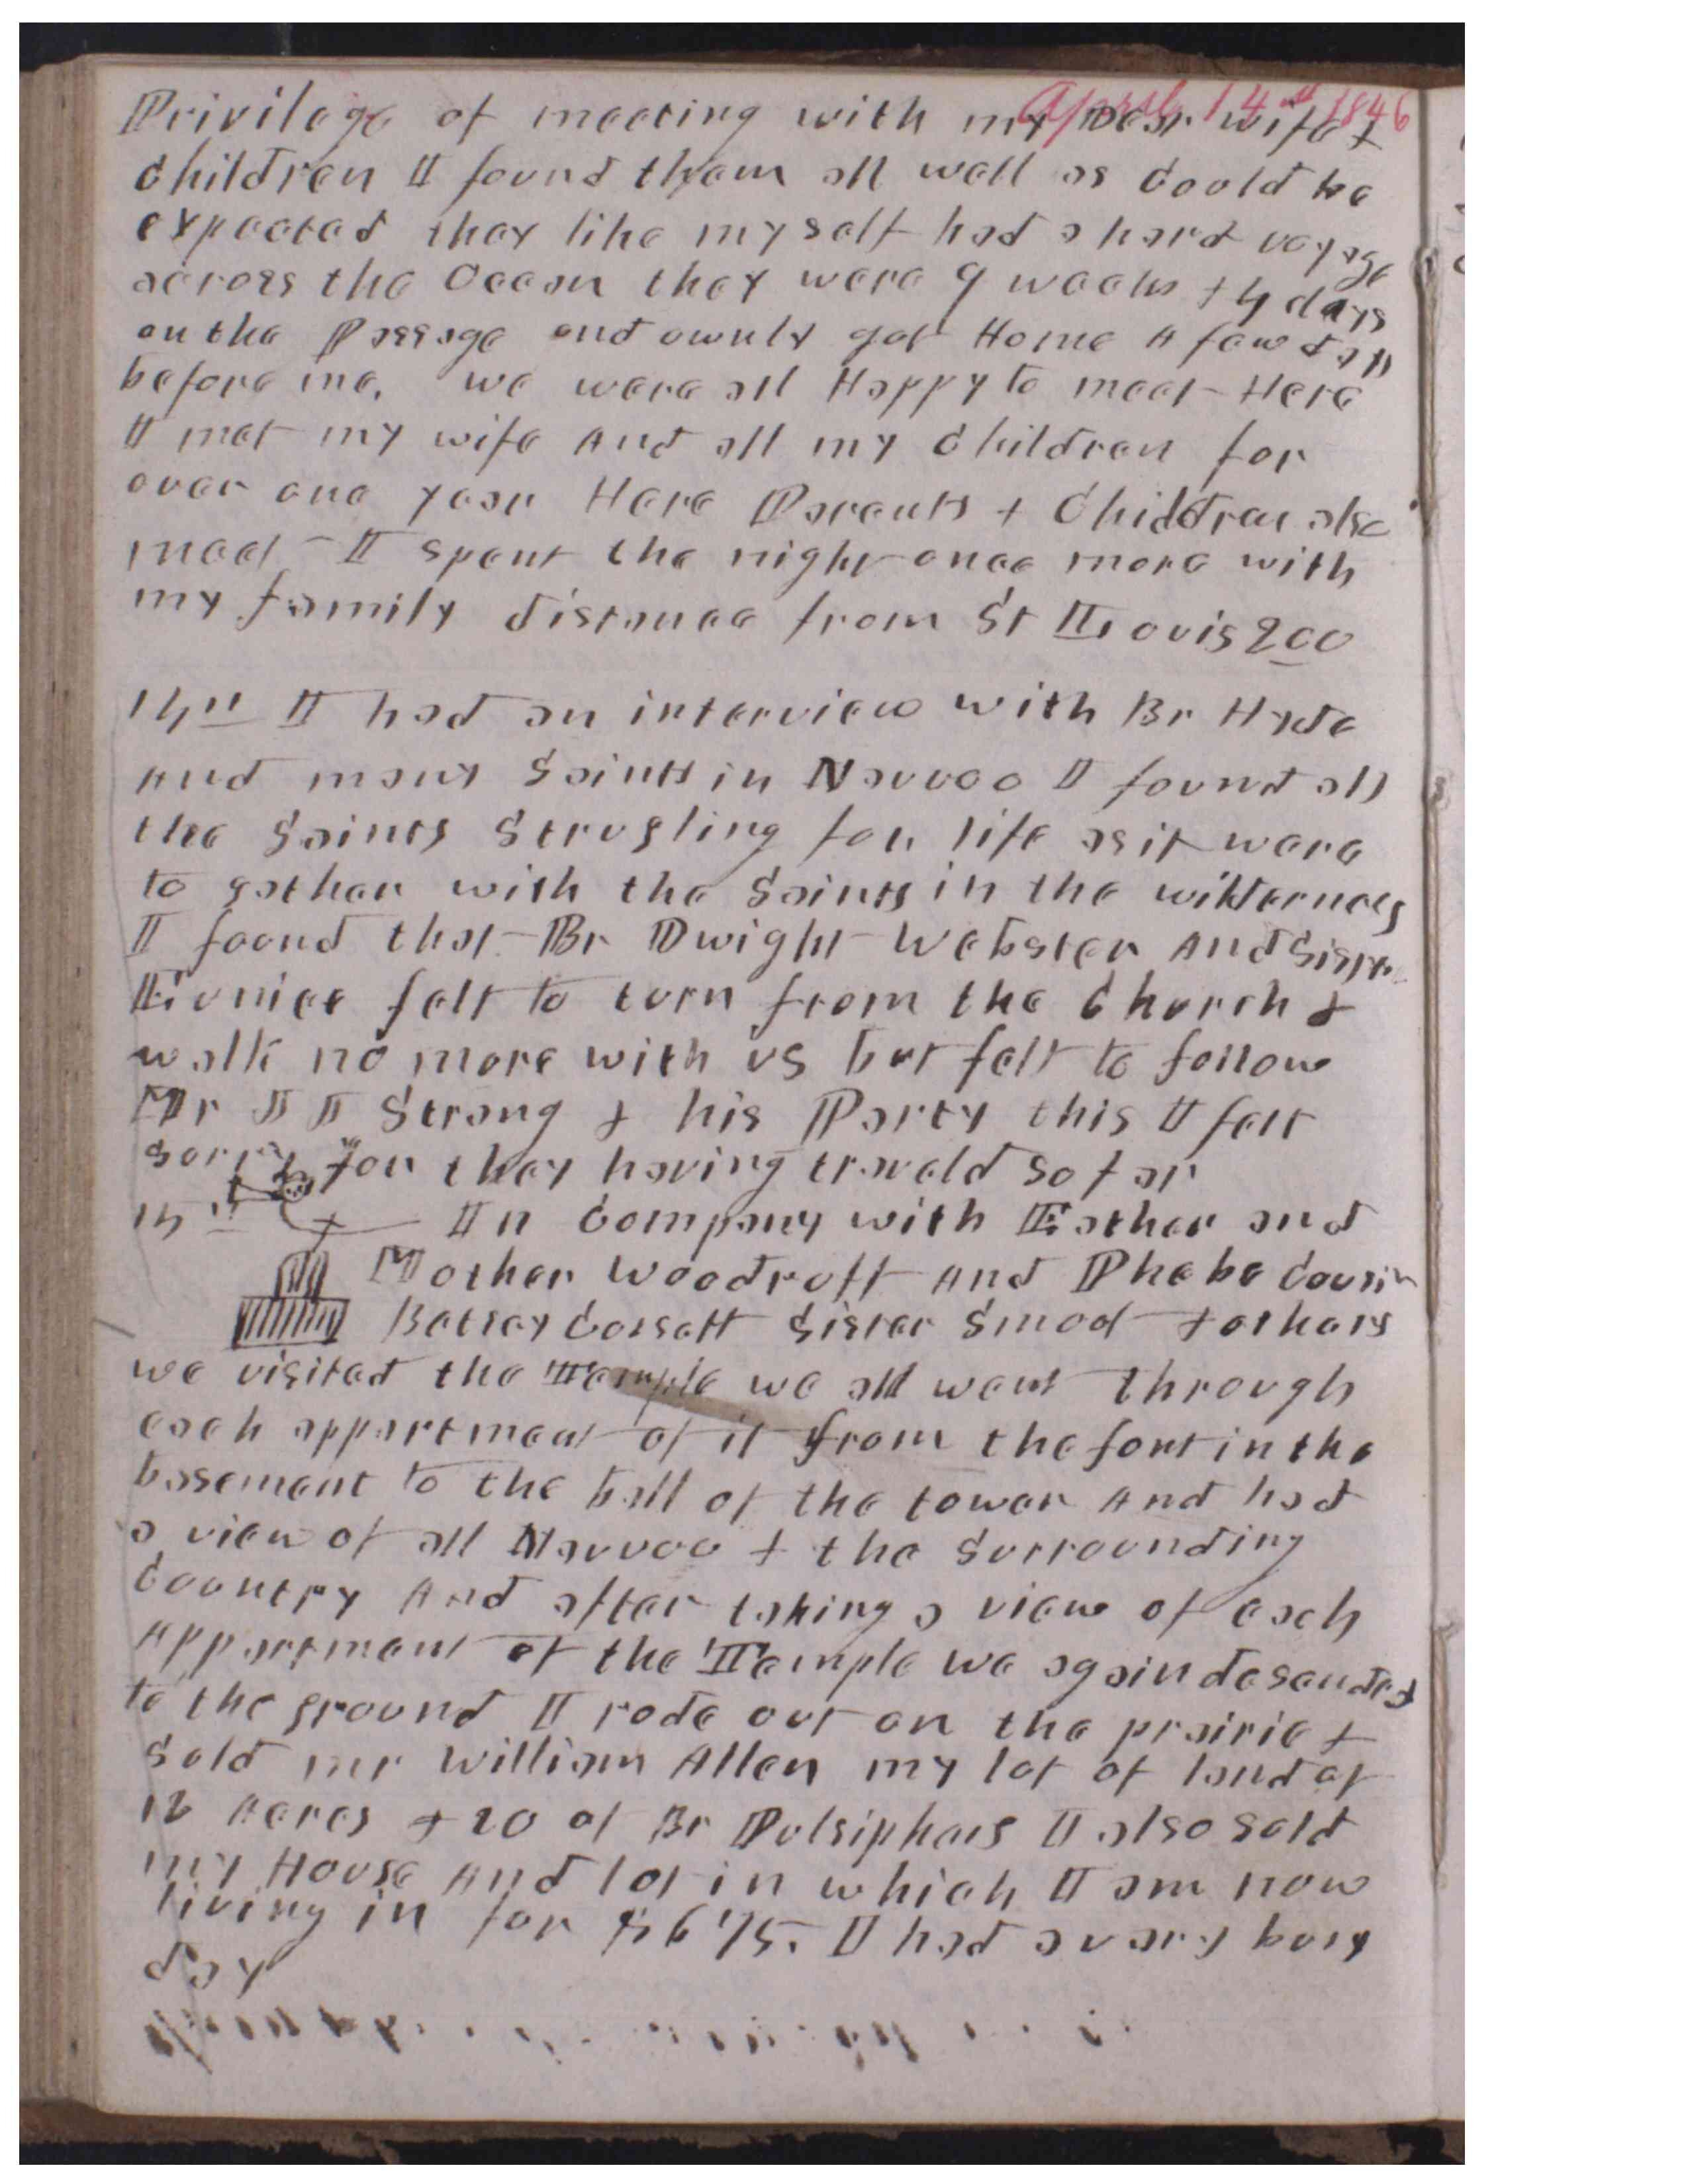 April 14th 1846
Privilege of meeting with my Dear wife &
Children I found them all well as Could be
expected they like myself had a hard voyage
across the Ocean they were 9 weeks & 4 days
on the Passage and ownly got Home A few days
before me. we were all Happy to meet Here
I met my wife And all my Children for
over one year Here Parents & Children also
meet I spent the night once more with
my family distance from St Louis 200
14th I had an interview with Br Hyde
And many Saints in Nauvoo I found all
the Saints Strugling for life as it were
to gather with the Saints in the wilderness
I found that Br Dwight Webster And Sister
Eunice felt to turn from the Church &
walk no more with us but felt to follow
Mr J J Strang & his Party this I felt
sorry for they having traveld so far
15th In Company with Father and
Mother Woodruff And Phebe Cousin
Betsey Cossett Sister Smoot & others
we visited the Temple we all went through
each appartment of it from the font in the
basement to the ball of the tower And had
a view of all Nauvoo & the Surrounding
Country And after taking a view of each
Appartment of the Temple we again desended
to the ground I rode out on the prairie &
Sold mr William Allen my lot of land of
12 Acres & 20 of Br Pulsiphers I also sold
my House And lot in which I am now
living in for $675. I had a very busy
day